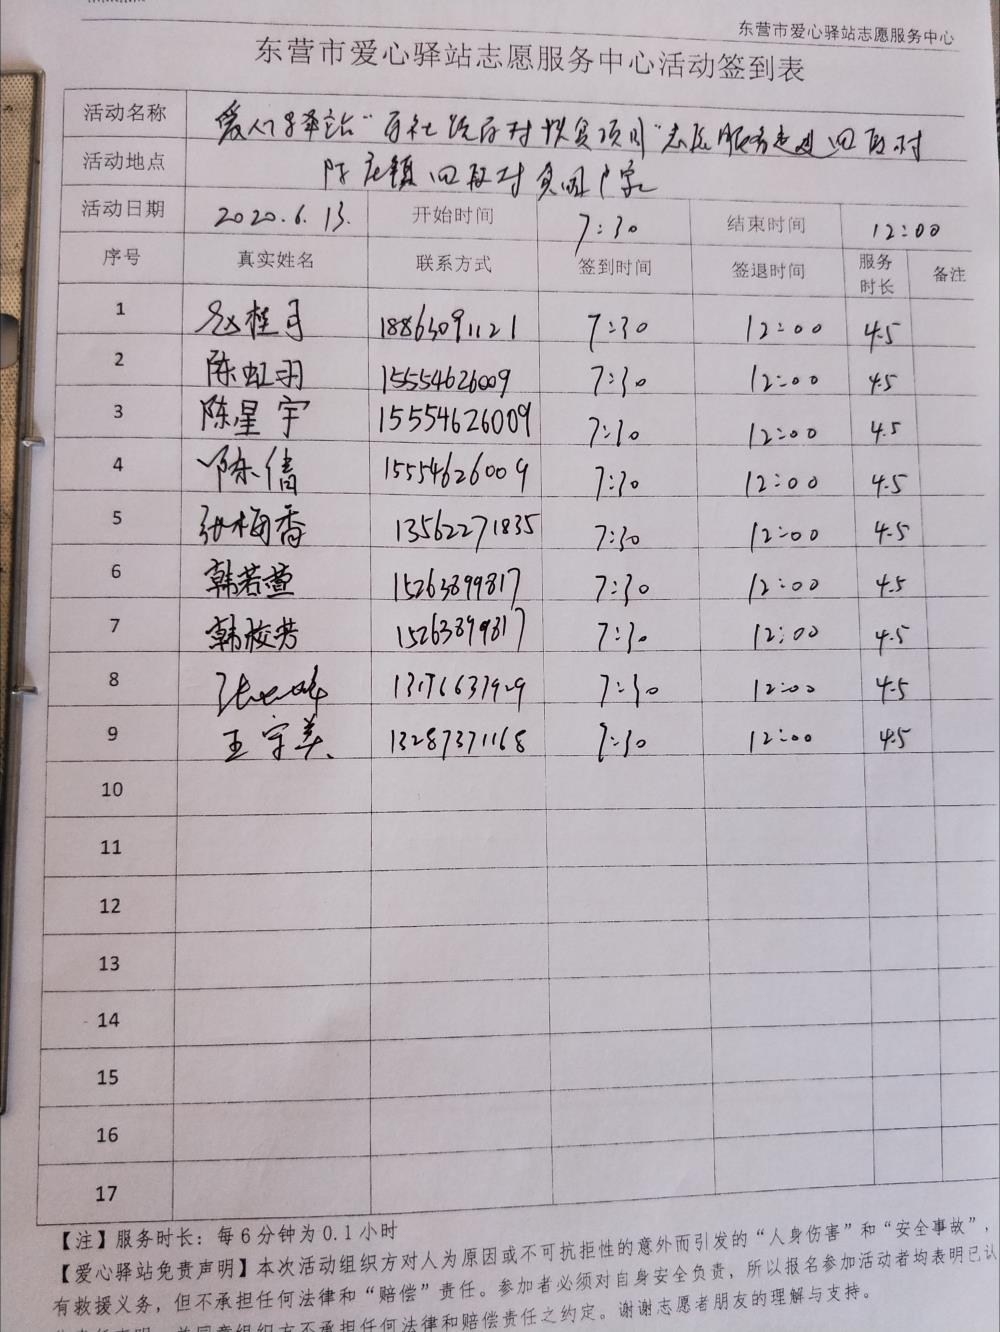 东营市爱心驿站志愿服务中心
东营市爱心驿站志愿服务中心活动签到表
活动名称 爱心驿站“百社统百村扶贫项目”志愿服务走进四段村
活动地点 陈庄镇四段村贫困户家
活动日期 2020.6.13. 开始时间 7:30 结束时间 12:00
序号 真实姓名 联系方式 签到时间 签退时间 服务时长 备注
1 赵桂月 18863091121 7:30 12:00 4.5
2 陈虹羽 15554626009 7:30 12:00 4.5
3 陈星宇 15554626009 7:30 12:00 4.5
4 陈倩 15554626009 7:30 12:00 4.5
5 张梅香 13562271835 7:30 12:00 4.5
6 韩若萱 15263899817 7:30 12:00 4.5
7 韩校芳 15263899817 7:30 12:00 4.5
8 7:30 12:00 4.5
9 王守美 13287371168 7:30 12:00 4.5
10
11
12
13
14
15
16
17
【注】服务时长：每6分钟为0.1小时
【爱心驿站免责声明】本次活动组织方对人为原因或不可抗拒性的意外而引发的“人身伤害”和“安全事故”，
有救援义务，但不承担任何法律和“赔偿”责任。参加者必须对自身安全负责，所以报名参加活动者均表明已认
并同意组织方不承担任何法律和赔偿责任之约定。谢谢志愿者朋友的理解与支持。